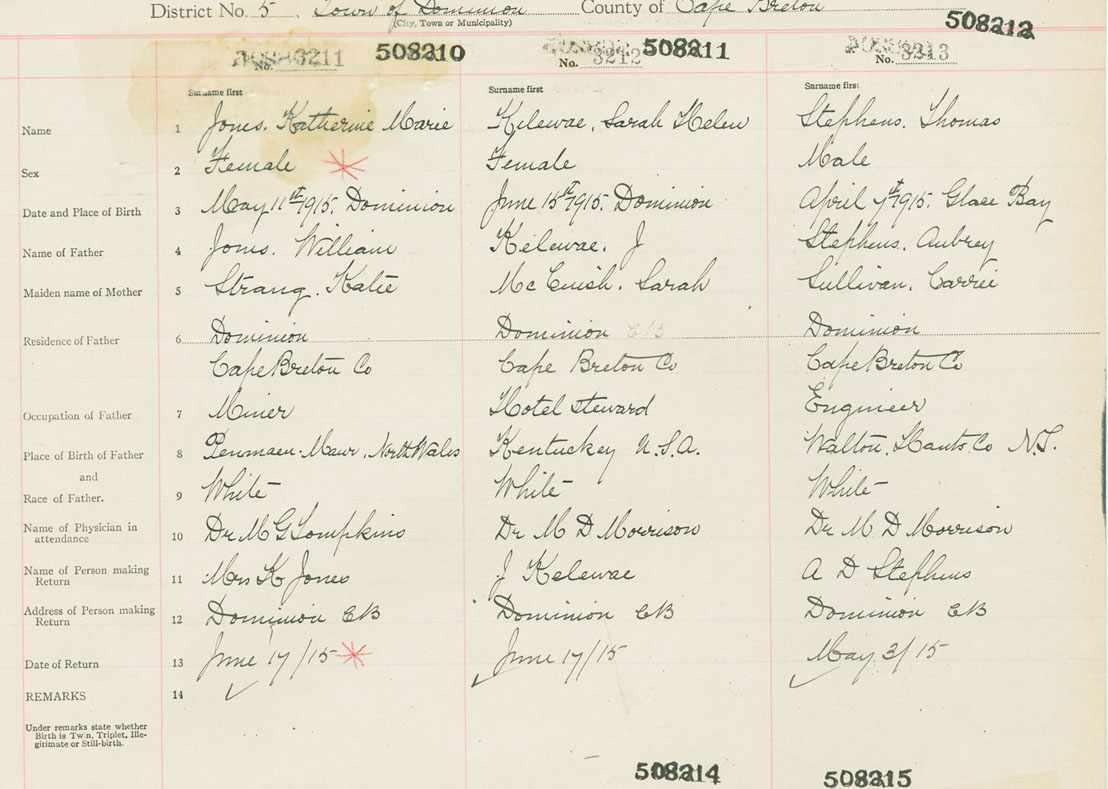 District No. 5, Town of Dominion County of Cape Breton
(City, Town or Municipality)
508212
No. 3211 508210 No. 3212 508211 No. 3213
Surname first Surname first Surname first
Name 1 Jones. Katherine Marie Kelewae, Sarah Helen Stephens, Thomas
Sex 2 Female Female Male
Date and Place of Birth 3 May 11th 1915. Dominion June 15th 1915. Dominion April 7th 1915. Glace Bay
Name of Father 4 Jones. William Kelewae. J Stephens. Aubrey
Maiden name of Mother 5 Strang. Katie Mc Cuish. Sarah Sullivan, Carrie
Residence of Father 6 Dominion Dominion Dominion
Cape Breton Co Cape Breton Co Cape Breton Co
Occupation of Father 7 Miner Hotel steward Engineer
Place of Birth of Father 8 Penmaen-Mawr, North Wales Kentuckey U.S.A. Walton, Hants Co N.S.
and
Race of Father. 9 White White White
Name of Physician in attendance 10 Dr M G Tompkins Dr M D Morrison Dr M D Morrison
Name of Person making Return 11 Mrs K Jones J Kelewae A D Stephens
Address of Person making Return 12 Dominion CB Dominion CB Dominion CB
Date of Return 13 June 17/15 June 17/15 May 3/15
REMARKS 14
Under remarks state whether
Birth is Twin, Triplet, Ille-
gitimate or Still-birth.
508214 508215